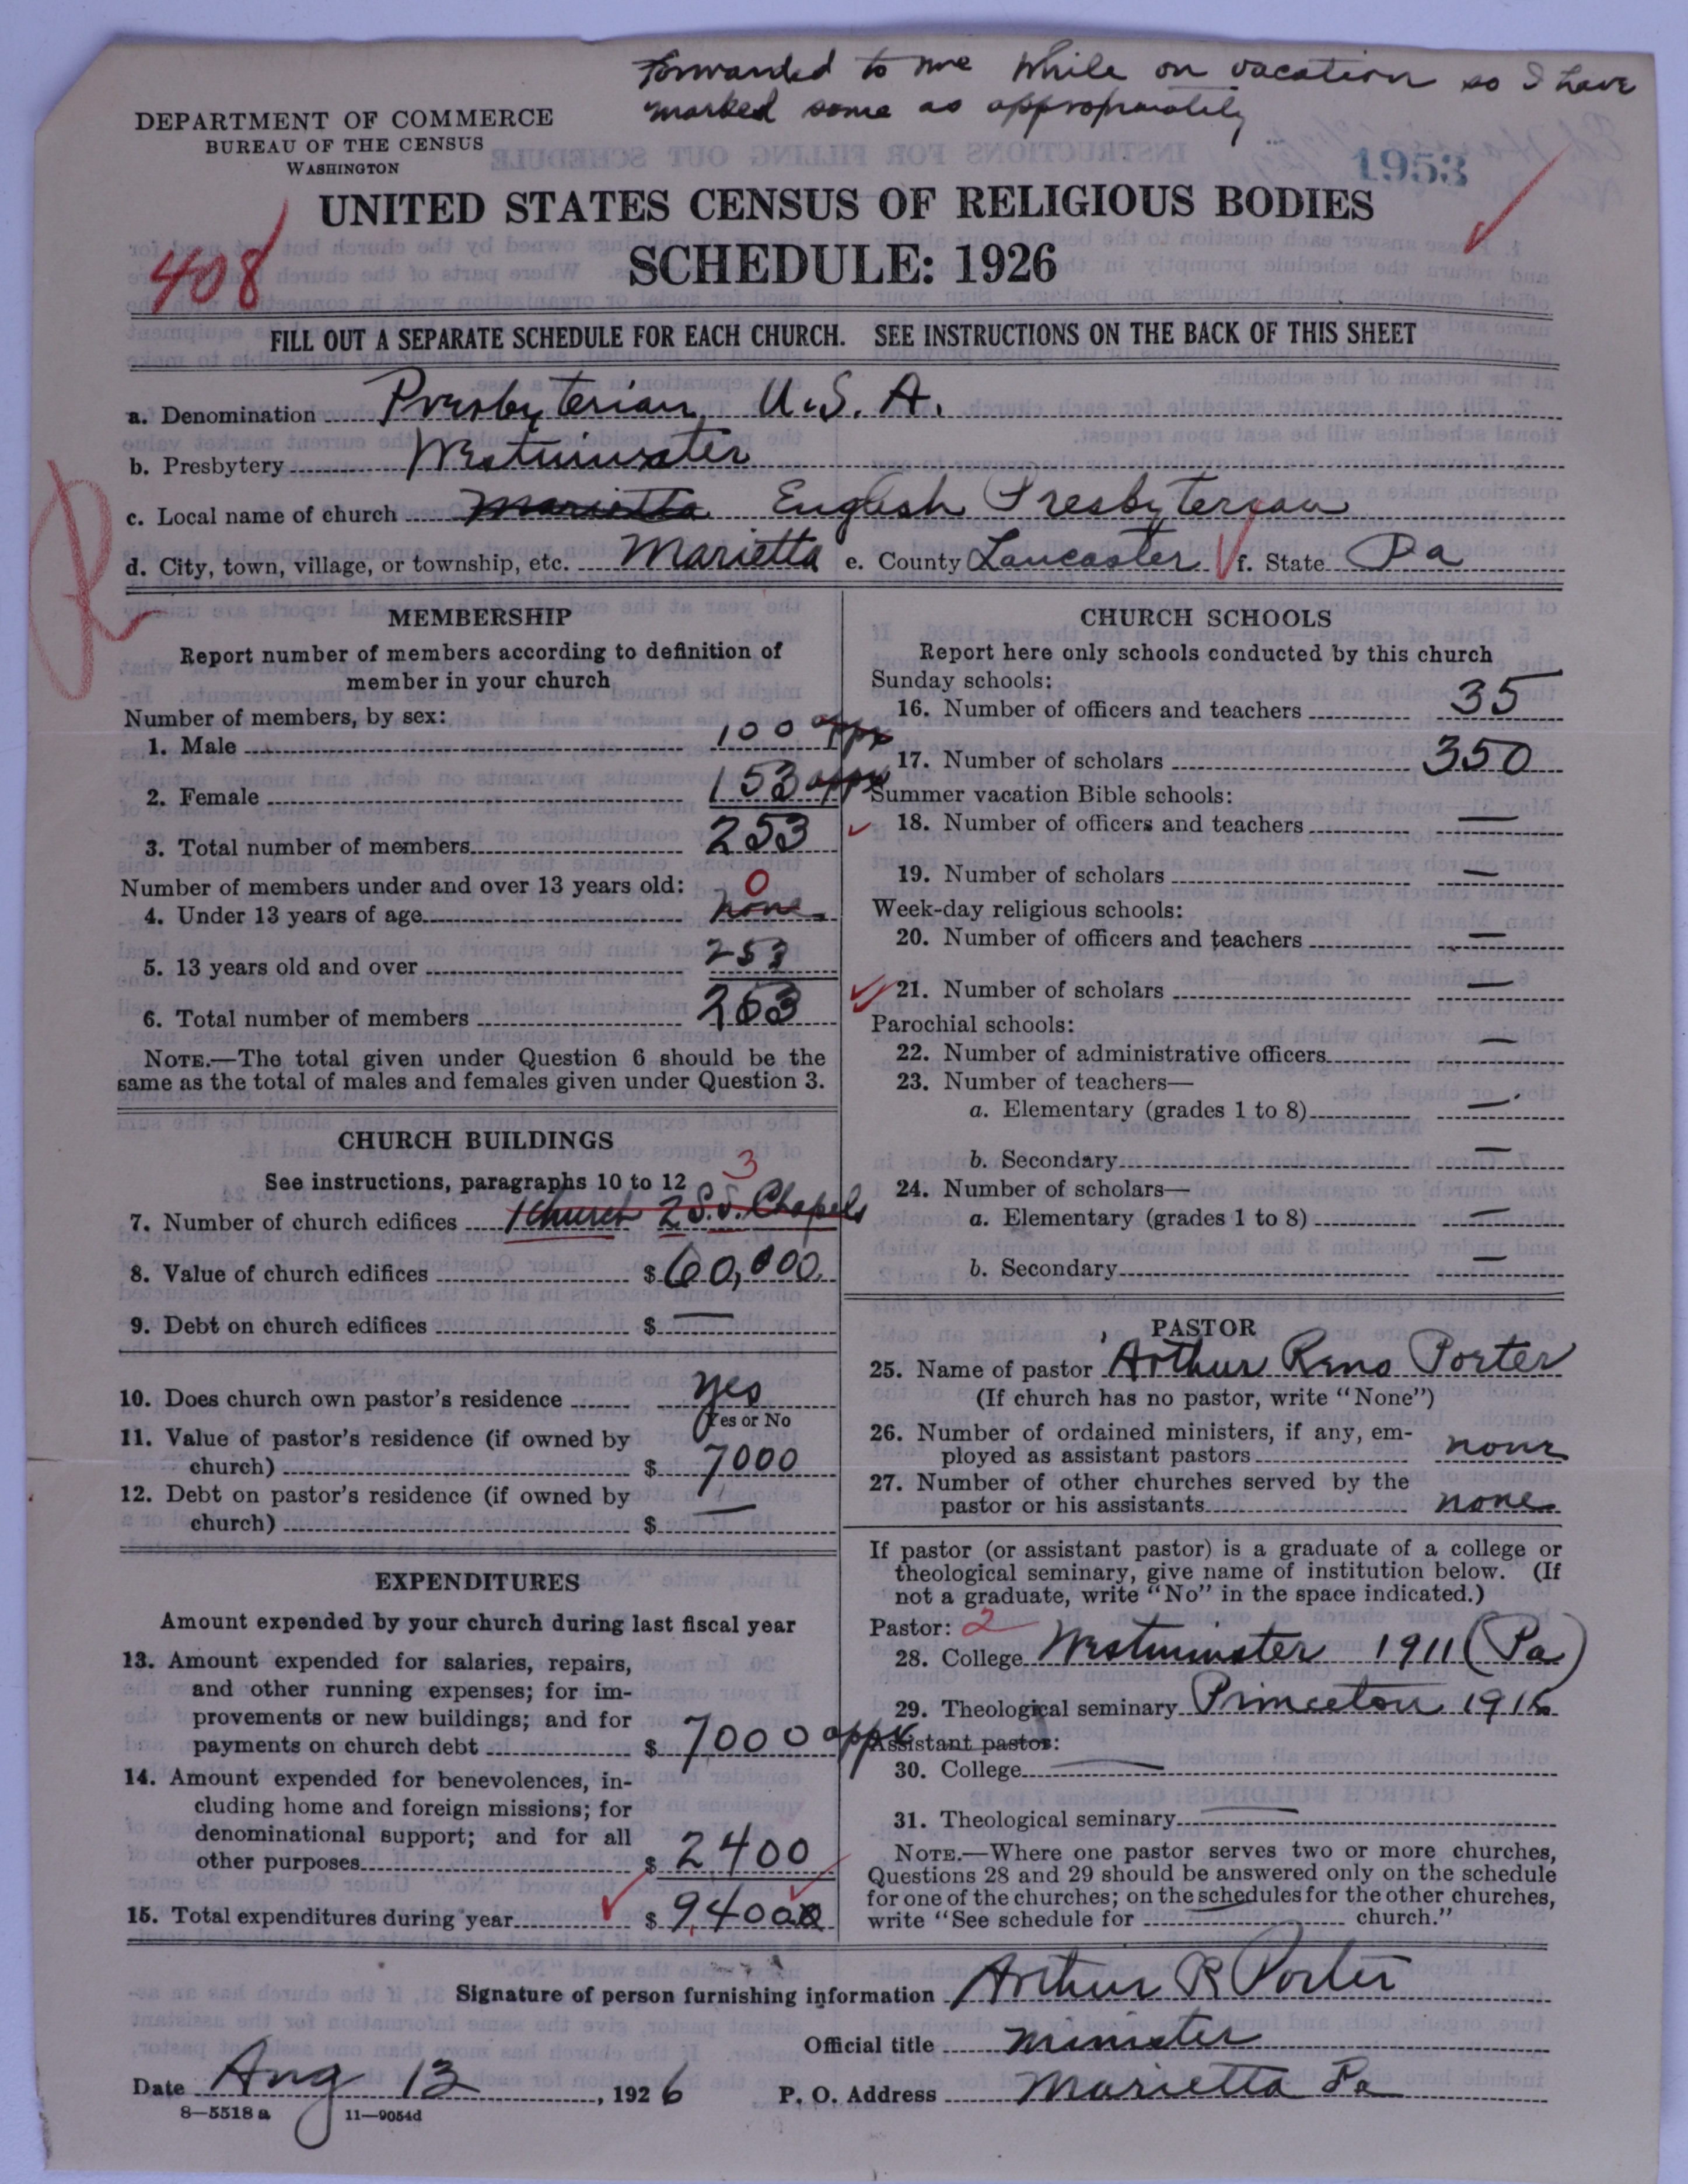 Forwarded to me while on vacation so I have
marked some as appropriately
DEPARTMENT OF COMMERCE
BUREAU OF THE CENSUS
WASHINGTON
1953
UNITED STATES CENSUS OF RELIGIOUS BODIES
408
SCHEDULE: 1926
FILL OUT A SEPARATE SCHEDULE FOR EACH CHURCH. SEE INSTRUCTIONS ON THE BACK OF THIS SHEET
a. Denomination Presbyterian U.S.A.
b. Presbytery Westminster
c. Local name of church Marietta English Presbyterian
d. City, town, village, or township, etc. Marietta e. County Lancaster f. State Pa
MEMBERSHIP
Report number of members according to definition of
member in your church
Number of members, by sex:
1. Male 100 appx
2. Female 153 appx
3. Total number of members 253
Number of members under and over 13 years old:
0
4. Under 13 years of age none
5. 13 years old and over 253
6. Total number of members 253
NOTE.—The total given under Question 6 should be the
same as the total of males and females given under Question 3.
CHURCH BUILDINGS
See instructions, paragraphs 10 to 12
3
7. Number of church edifices 1 Church 2 S.S. Chapels
8. Value of church edifices $ 60,000
9. Debt on church edifices $ —
10. Does church own pastor's residence yes
Yes or No
11. Value of pastor's residence (if owned by
church) $ 7000
12. Debt on pastor's residence (if owned by
church) $ —
EXPENDITURES
Amount expended by your church during last fiscal year
13. Amount expended for salaries, repairs,
and other running expenses; for im-
provements or new buildings; and for
payments on church debt $ 7000 appx
14. Amount expended for benevolences, in-
cluding home and foreign missions; for
denominational support; and for all
other purposes $ 2400
15. Total expenditures during year $ 9,400
CHURCH SCHOOLS
Report here only schools conducted by this church
Sunday schools:
16. Number of officers and teachers 35
17. Number of scholars 350
Summer vacation Bible schools:
18. Number of officers and teachers —
19. Number of scholars —
Week-day religious schools:
20. Number of officers and teachers —
21. Number of scholars —
Parochial schools:
22. Number of administrative officers —
23. Number of teachers—
a. Elementary (grades 1 to 8) —
b. Secondary —
24. Number of scholars—
a. Elementary (grades 1 to 8) —
b. Secondary —
PASTOR
25. Name of pastor Arthur Reno Porter
(If church has no pastor, write "None")
26. Number of ordained ministers, if any, em-
ployed as assistant pastors none
27. Number of other churches served by the
pastor or his assistants none
If pastor (or assistant pastor) is a graduate of a college or
theological seminary, give name of institution below. (If
not a graduate, write "No" in the space indicated.)
Pastor: 2
28. College Westminster 1911 (Pa)
29. Theological seminary Princeton
Assistant pastor:
30. College —
31. Theological seminary —
NOTE.—Where one pastor serves two or more churches,
Questions 28 and 29 should be answered only on the schedule
for one of the churches; on the schedules for the other churches,
write "See schedule for church."
Signature of person furnishing information Arthur R Porter
Official title Minister
Date Aug 13, 1926 P. O. Address Marietta Pa
8—5518 a 11—9054d